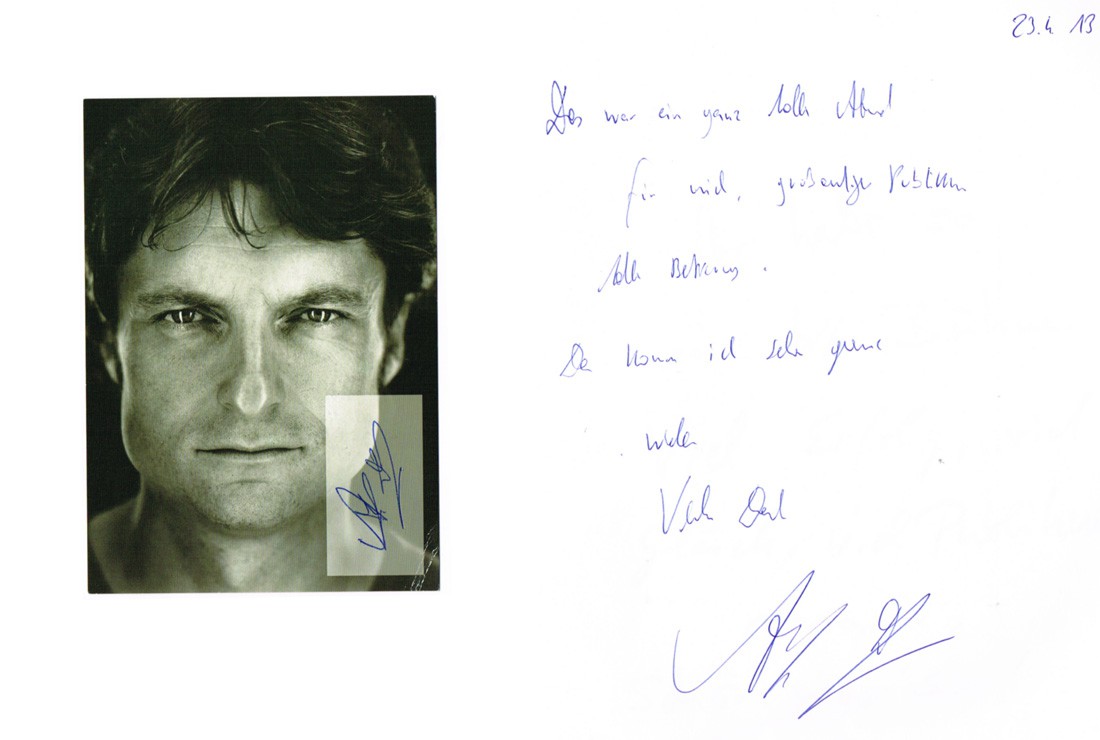 23.4.13
Das war ein ganz toller Abend
für mich, großartiges Publikum
tolle Betreuung.
Da komm ich sehr gerne
wieder
Vielen Dank